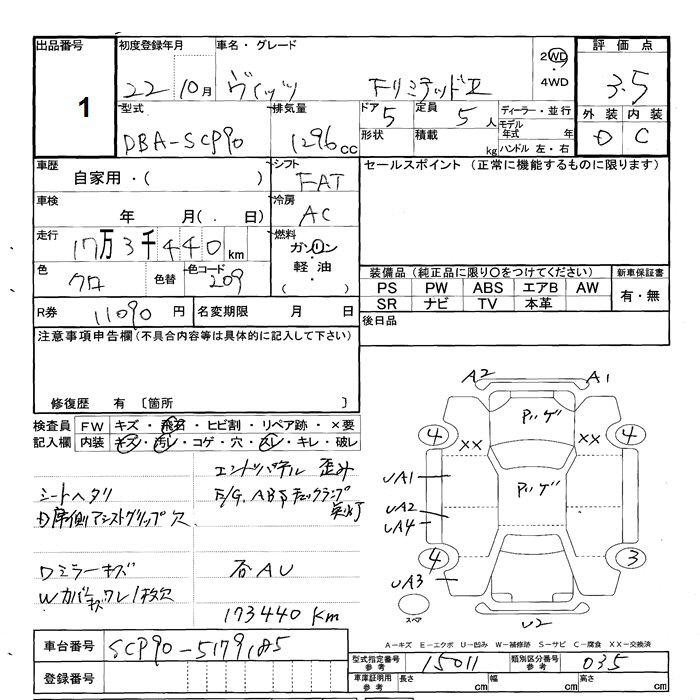 出品番号 初度登録年月 車名・グレード 2WD 評価点
1 22 10月 ヴィッツ FリミテッドII 4WD 3.5
型式 排気量 ドア 5 定員 5人 ディーラー・並行 外装 内装
DBA-SCP90 1296cc 形状 積載 kg モデル年式 年 ハンドル 左・右 D C
車歴 シフト セールスポイント (正常に機能するものに限ります)
自家用・( ) FAT
車検 冷房
年 月(. 日) AC
走行 燃料
17万3千440km ガソリン
色 色替 色コード 軽油 装備品 (純正品に限り○をつけてください) 新車保証書
クロ 209 ( ) PS PW ABS エアB AW 有・無
SR ナビ TV 本革
R券 11090円 名変期限 月 日 後日品
注意事項申告欄(不具合内容等は具体的に記入して下さい)
修復歴 有 〔箇所 〕
検査員 FW キズ・飛石・ヒビ割・リペア跡・×要
記入欄 内装 キズ・汚レ・コゲ・穴・スレ・キレ・破レ
エンドパネル 歪み
シートヘタリ E/G、ABSチェックランプ
D席側アシストグリップ欠 点灯
Dミラーキズ 否AU
Wカバーキズワレ1枚欠
173440Km
A2 A1
4 XX XX 4
Pハゲ
UA1 Pハゲ
UA2
UA4
4 3
UA3
スペア U2
A-キズ E-エクボ U-凹み W-補修跡 S-サビ C-腐食 XX-交換済
車台番号 SCP90-5179185
型式指定番号 参考 15011 類別区分番号 参考 035
登録番号
車庫証明用 参考 長さ cm 幅 cm 高さ cm